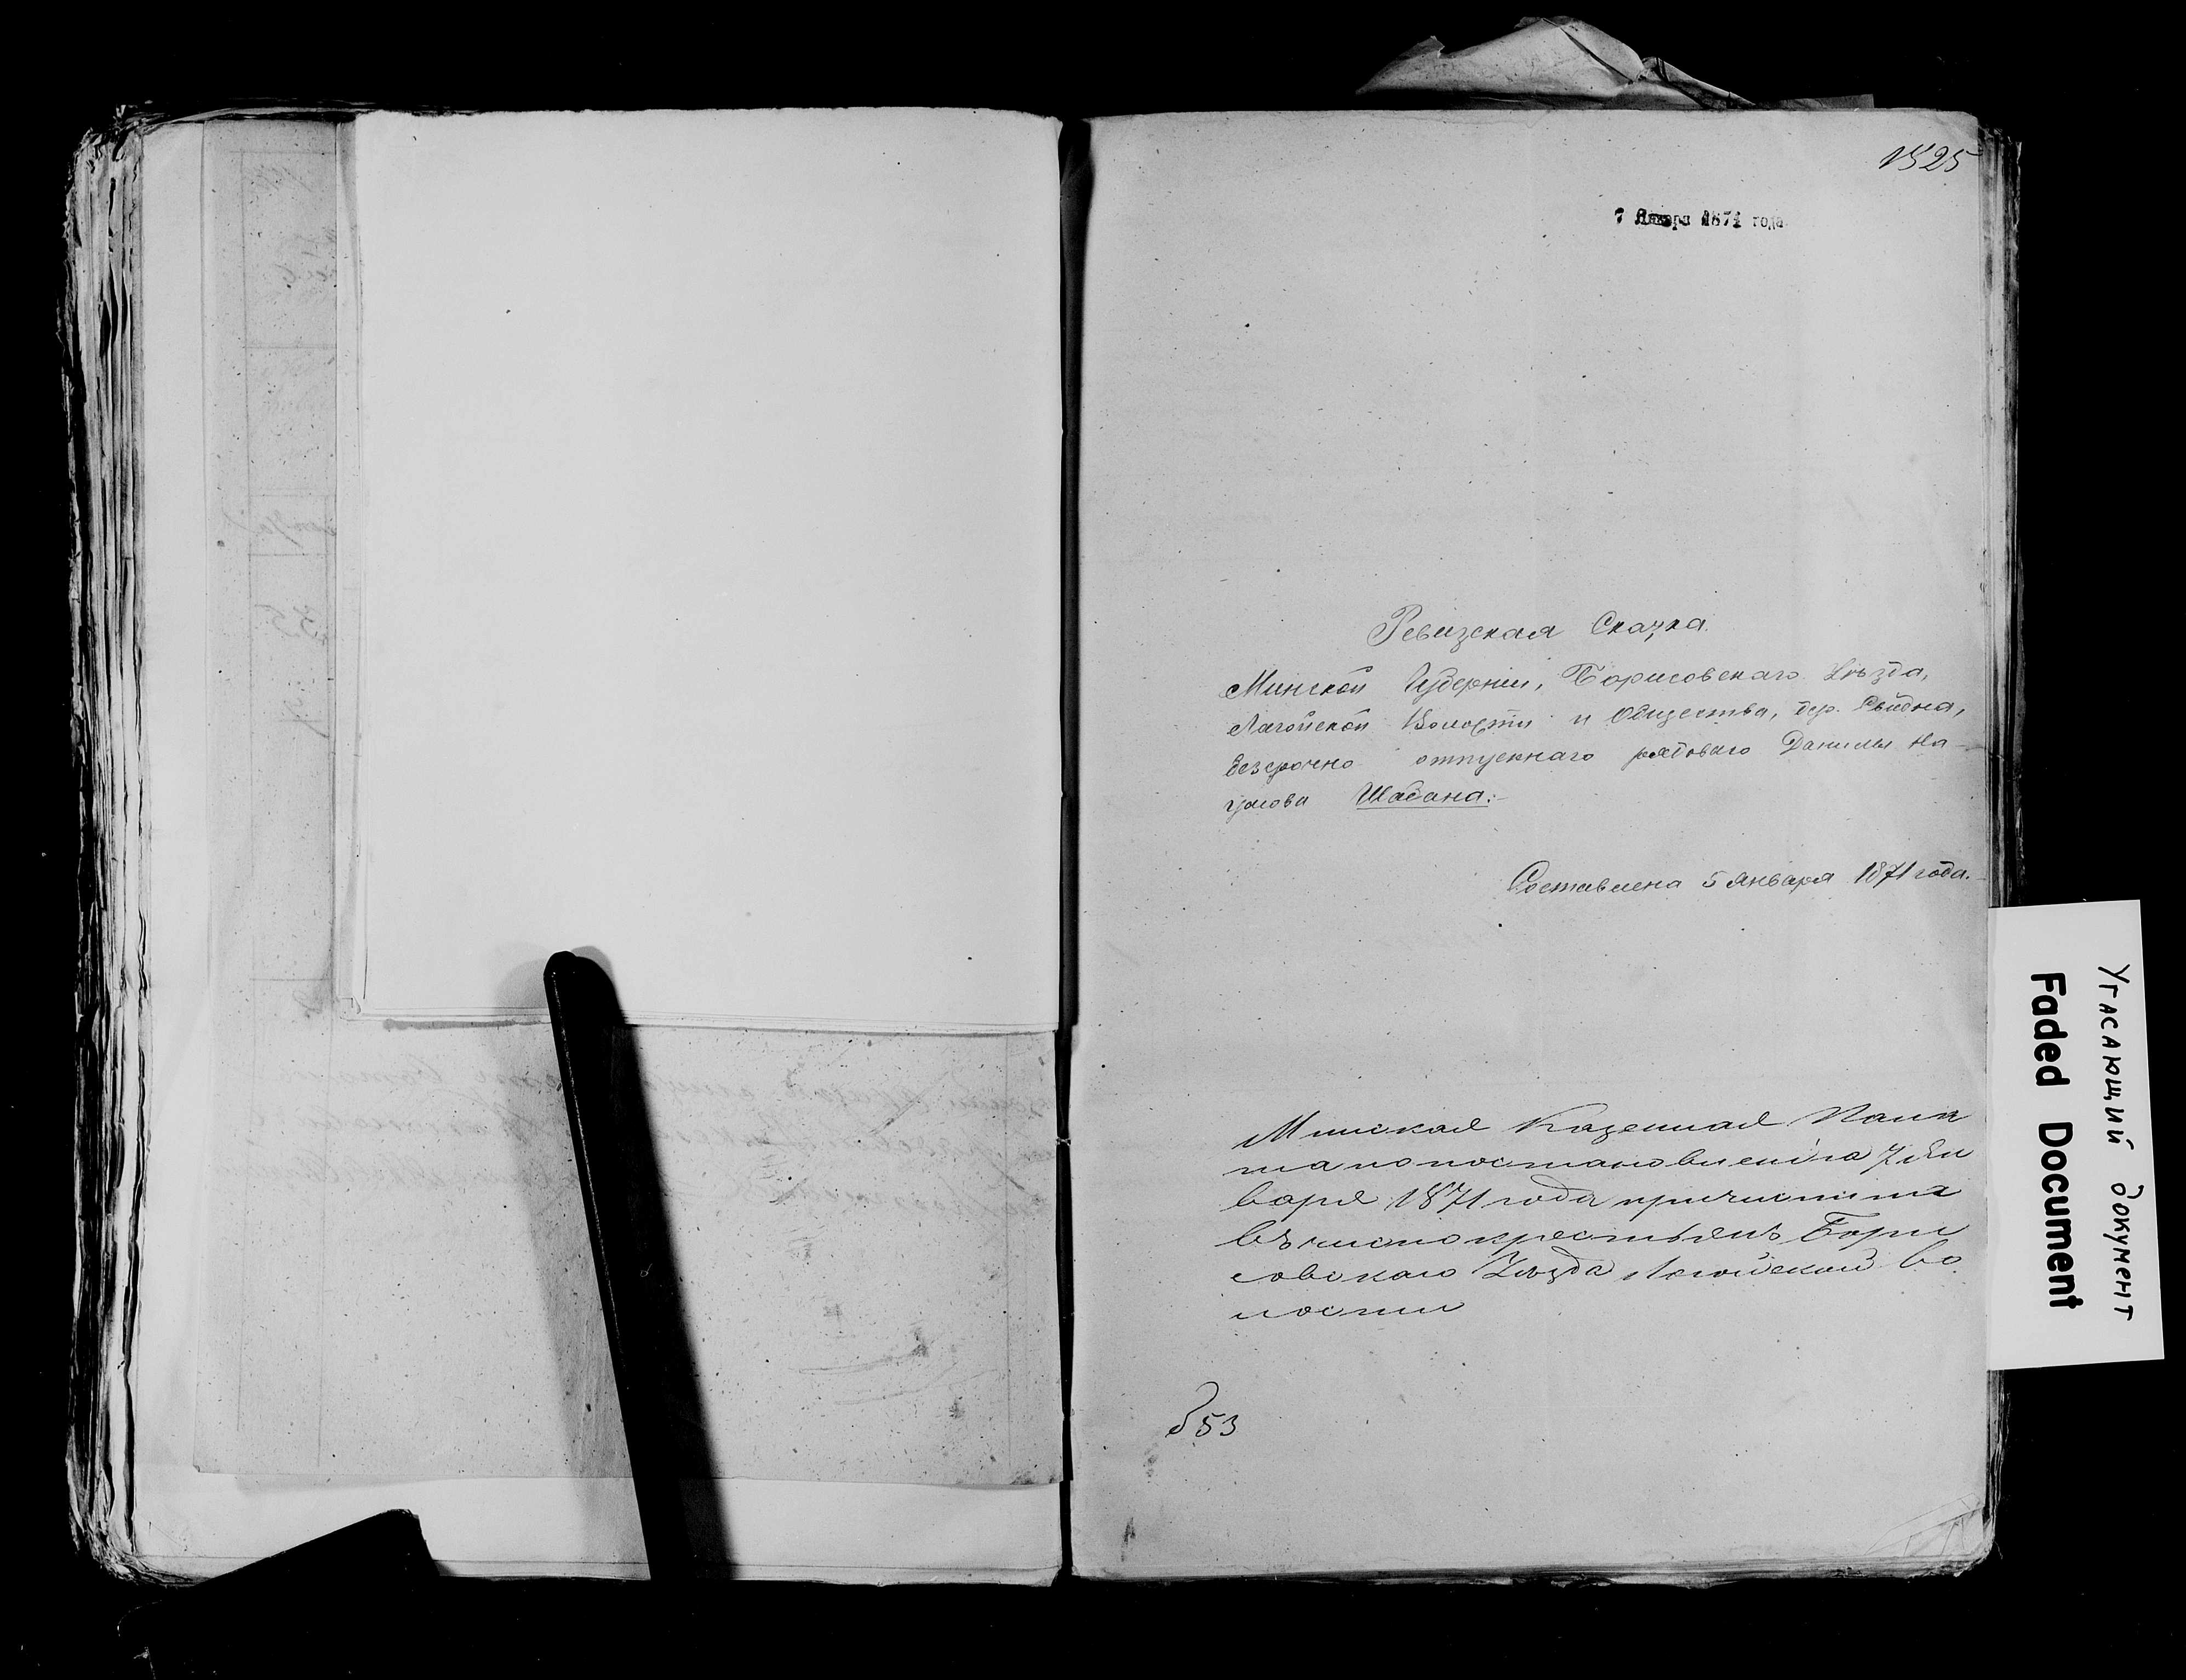 1525
7 Января 1871 года.
Ревизская Сказка
Минской Губерніи, Борисовскаго Уѣзда,
Лагойской Волости и Общества, дер. Свидна,
безсрочно отпускнаго рядоваго Данилы На-
умова Шабана:-
Составлена 5 Января 1871 года.
Минская Казенная Пала
та по постановленію 7 Ян
варя 1871 года причислила
въ число крестьянъ Бори
совскаго Уѣзда Логойской во
лости
853
Угасающий документ
Faded Document